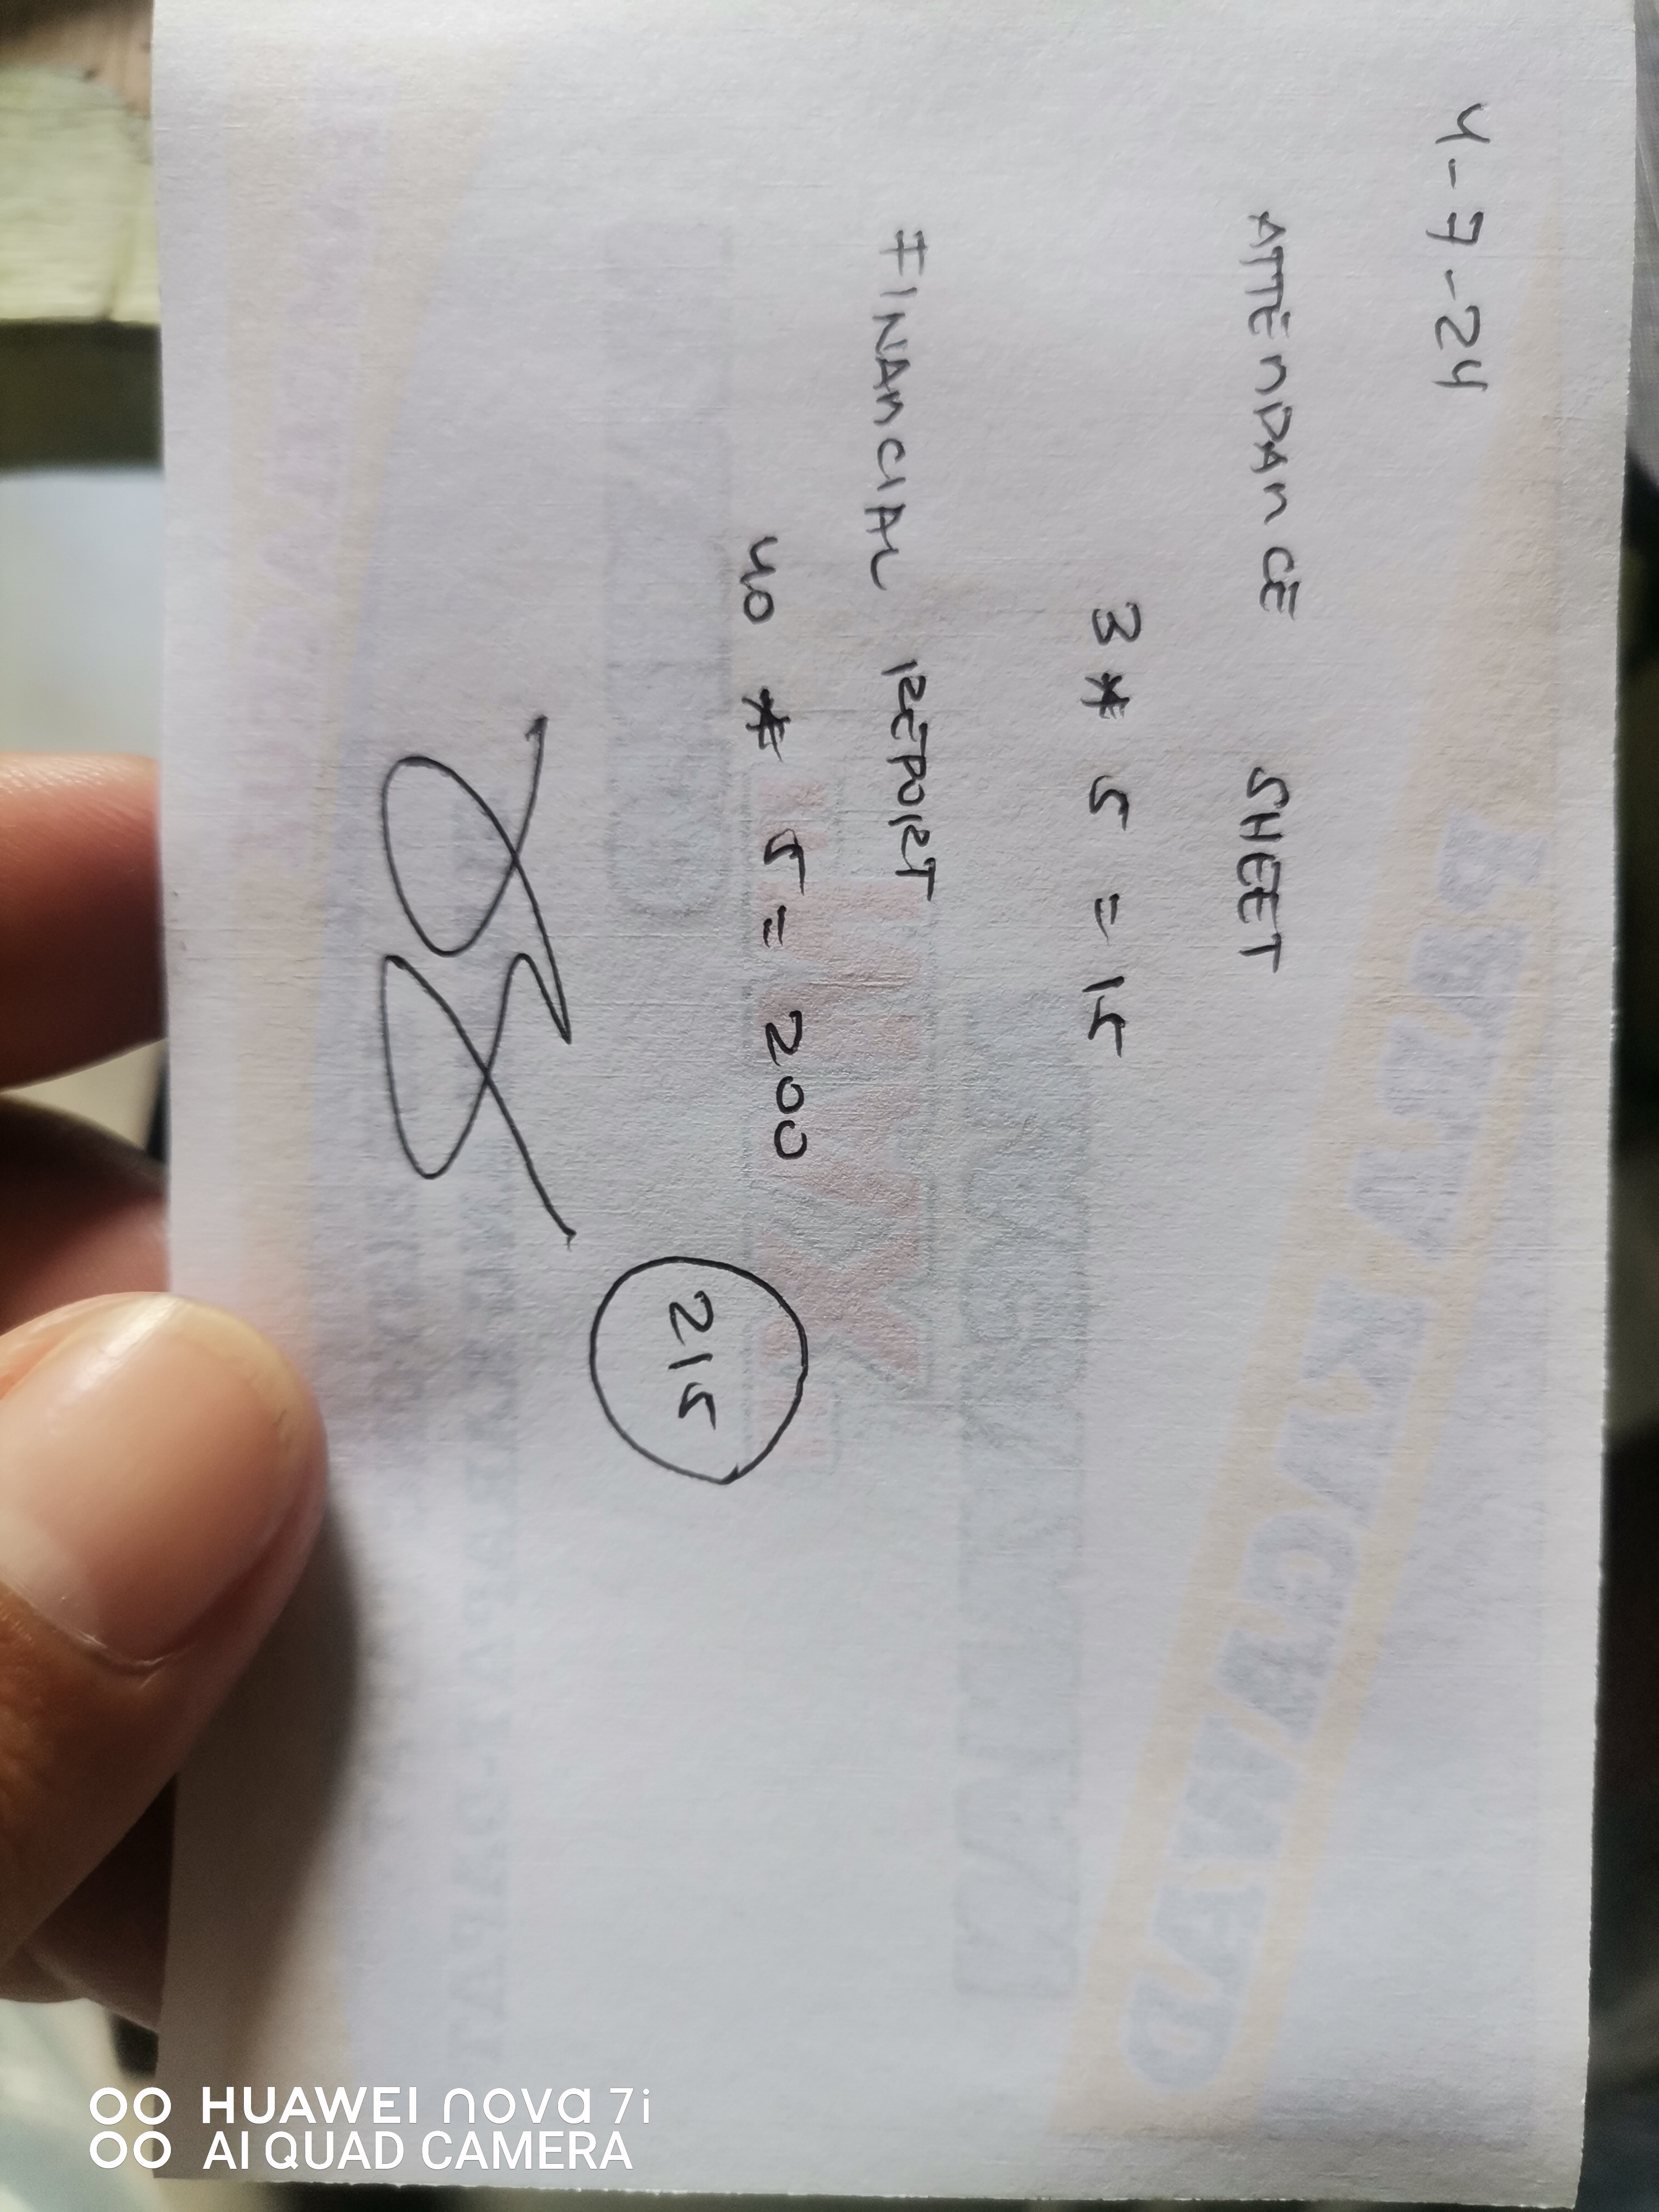 4-7-24
ATTENDANCE SHEET
3 * 5 = 15
FINANCIAL REPORT
40 * 5 = 200
215
HUAWEI nova 7i
AI QUAD CAMERA